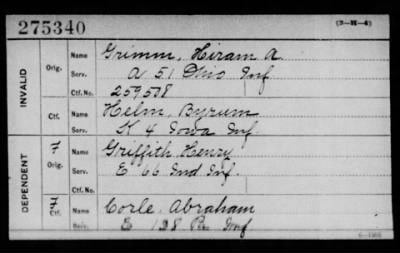 275340
(3-H-4)
INVALID
Orig. Name Grimm, Hiram A.
Serv. A 51 Ohio Inf
Ctf. No. 259508
Ctf. Name Helm, Byrum
Serv. K 4 Iowa Inf
DEPENDENT
F
Orig. Name Griffith, Henry
Serv. E 66 Ind Inf.
Ctf. No.
F
Ctf. Name Corle, Abraham
Serv. E 138 Pa Inf